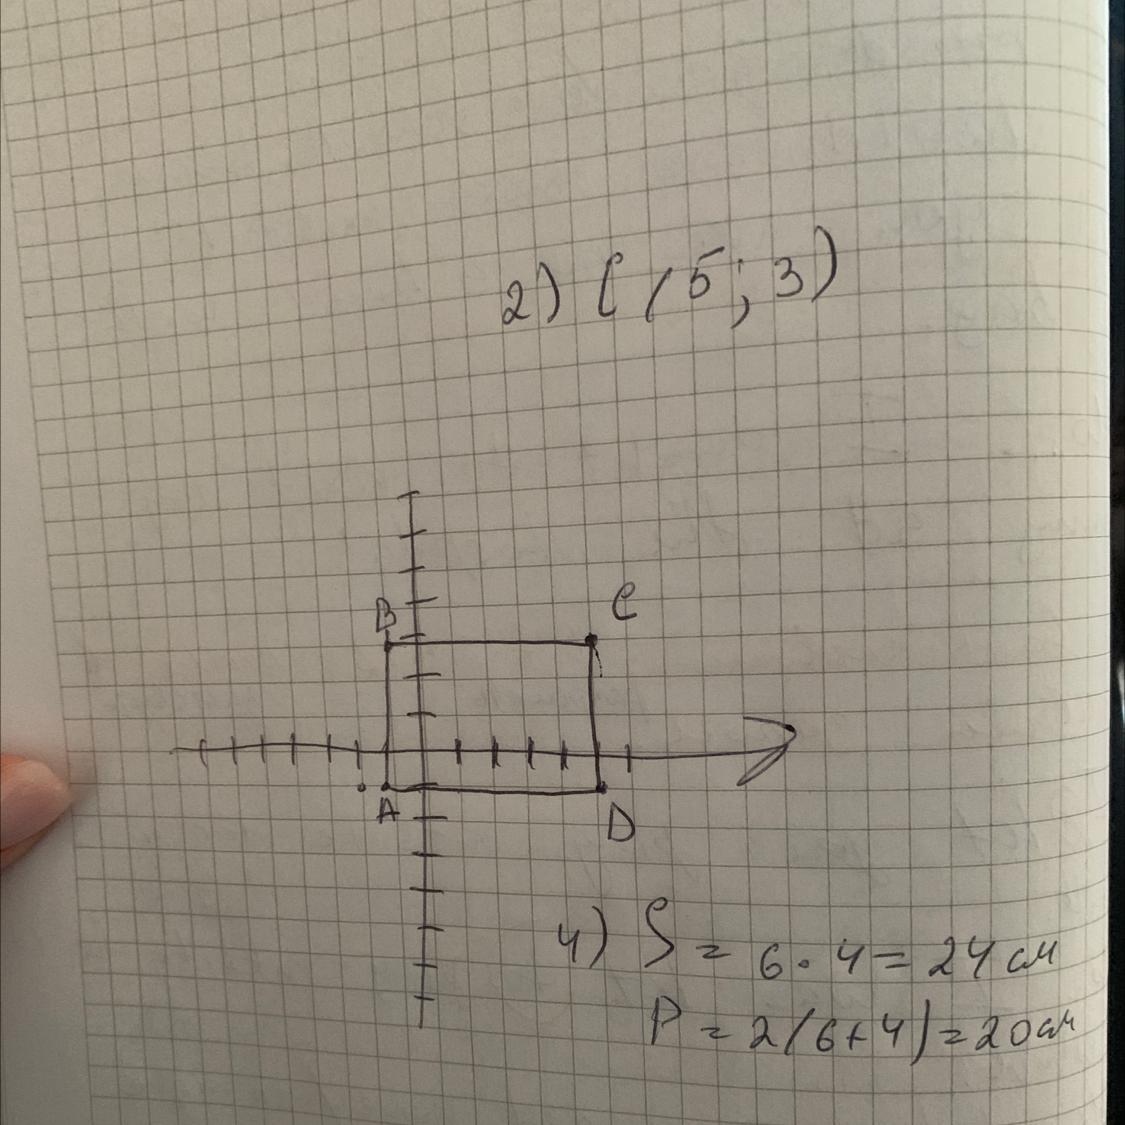 2) C (5; 3)
B
C
A
D
4) S = 6 · 4 = 24 см
P = 2(6+4) = 20 см